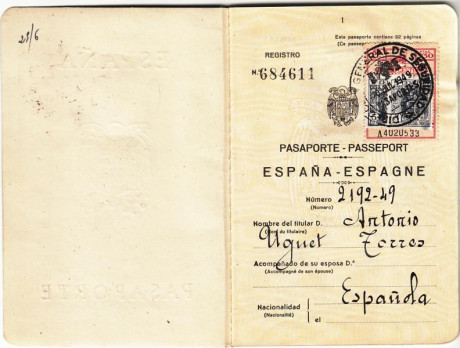 28/6
1
Este pasaporte contiene 32 páginas
(Ce passeport
REGISTRO
N.º 684611
GENERAL DE SEGURIDAD
A4020533
PASAPORTE - PASSEPORT
ESPAÑA - ESPAGNE
Número 2192-49
(Numéro)
Nombre del titular D. Antonio
(Nom du titulaire)
Uguet Torres
Acompañado de su esposa D.ª
(Accompagné de son épouse)
Nacionalidad Española
(Nationalité) el
PASAPORTE